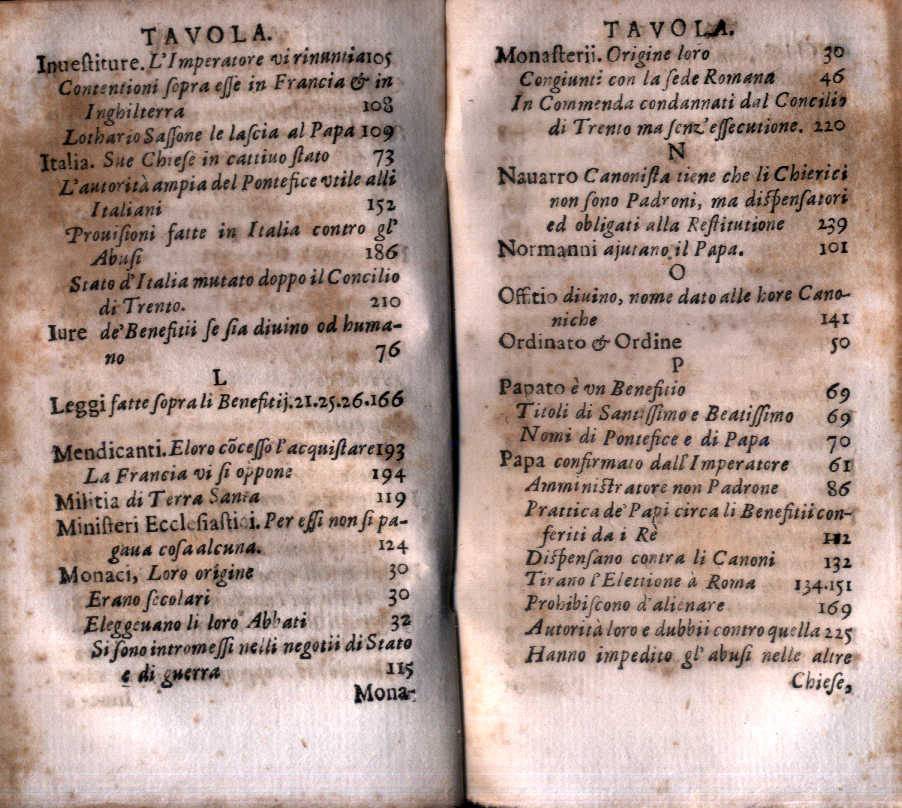 TAVOLA.
Inueſtiture. L'Imperatore vi rinuntia 105
Contentioni ſopra eſſe in Francia & in
Inghilterra 108
Lothario Saſſone le laſcia al Papa 109
Italia. Sue Chieſe in cattiuo ſtato 73
L'autorità ampia del Pontefice vtile alli
Italiani 152
Prouiſioni fatte in Italia contro gl'
Abuſi 186
Stato d'Italia mutato doppo il Concilio
di Trento. 210
Iure de' Benefitii ſe ſia diuino od huma-
no 76
L
Leggi fatte ſopra li Benefitij. 21.25.26.166
Mendicanti. E loro cōceſſo l'acquiſtare 193
La Francia vi ſi oppone 194
Militia di Terra Santa 119
Miniſteri Eccleſiaſtici. Per eſſi non ſi pa-
gaua coſa alcuna. 124
Monaci, Loro origine 30
Erano ſecolari 30
Eleggeuano li loro Abbati 32
Si ſono intromeſſi nelli negotii di Stato
e di guerra 115
Mona-
TAVOLA.
Monaſterii. Origine loro 30
Congiunti con la ſede Romana 46
In Commenda condannati dal Concilio
di Trento ma ſenz'eſſecutione. 220
N
Nauarro Canoniſta tiene che li Chierici
non ſono Padroni, ma diſpenſatori
ed obligati alla Reſtitutione 239
Normanni ajutano il Papa. 101
O
Offitio diuino, nome dato alle hore Cano-
niche 141
Ordinato & Ordine 50
P
Papato è vn Benefitio 69
Titoli di Santiſſimo e Beatiſſimo 69
Nomi di Pontefice e di Papa 70
Papa confirmato dall'Imperatore 61
Amminiſtratore non Padrone 86
Prattica de' Papi circa li Benefitii con-
feriti da i Rè 112
Diſpenſano contra li Canoni 132
Tirano l'Elettione à Roma 134.151
Prohibiſcono d'alienare 169
Autorità loro e dubbii contro quella 225
Hanno impedito gl'abuſi nelle altre
Chieſe,